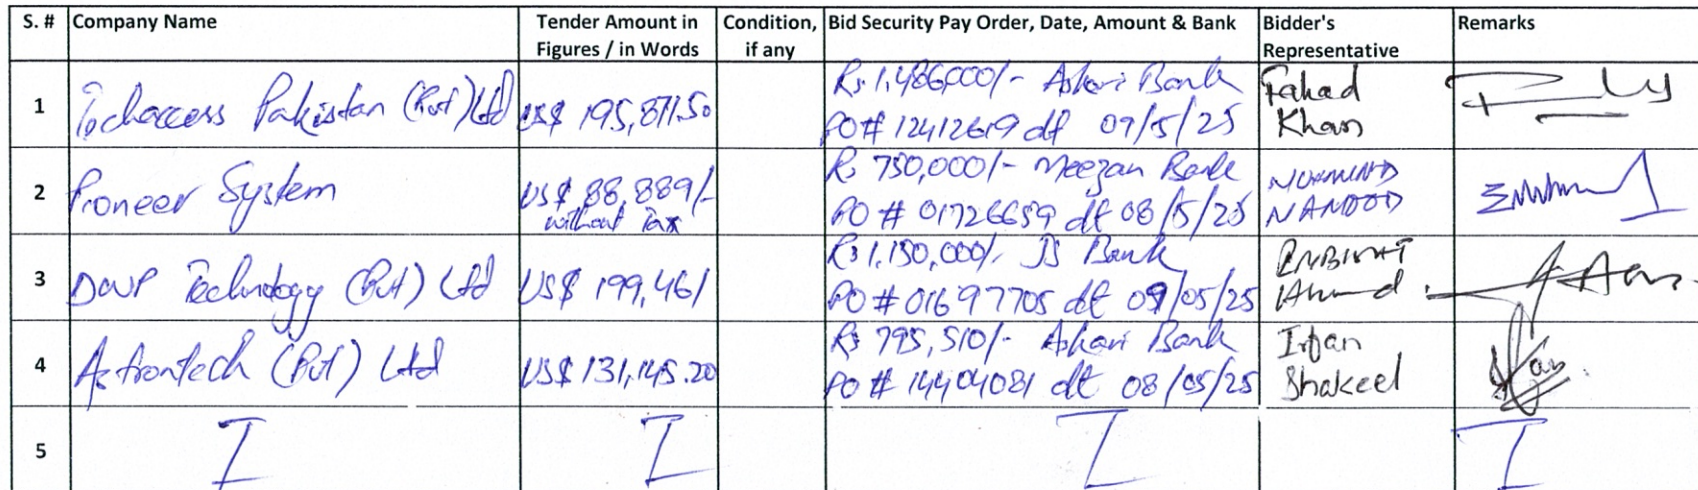 S. # Company Name Tender Amount in Figures / in Words Condition, if any Bid Security Pay Order, Date, Amount & Bank Bidder's Representative Remarks
1 Techaccess Pakistan (Pvt) Ltd US$ 195,871.50 Rs 1,486,000/- Askari Bank Fahad
PO# 12412619 dt 09/5/25 Khan
2 Pioneer System US$ 88,889/- Rs 750,000/- Meezan Bank
without Tax PO # 01726659 dt 08/5/25
3 DWP Technology (Pvt) Ltd US$ 199,461 Rs 1,150,000/- JS Bank
PO # 01697705 dt 09/05/25 Ahmad
4 Astrontech (Pvt) Ltd US$ 131,145.20 Rs 795,510/- Askari Bank Irfan
PO # 14404081 dt 08/05/25 Shakeel
5